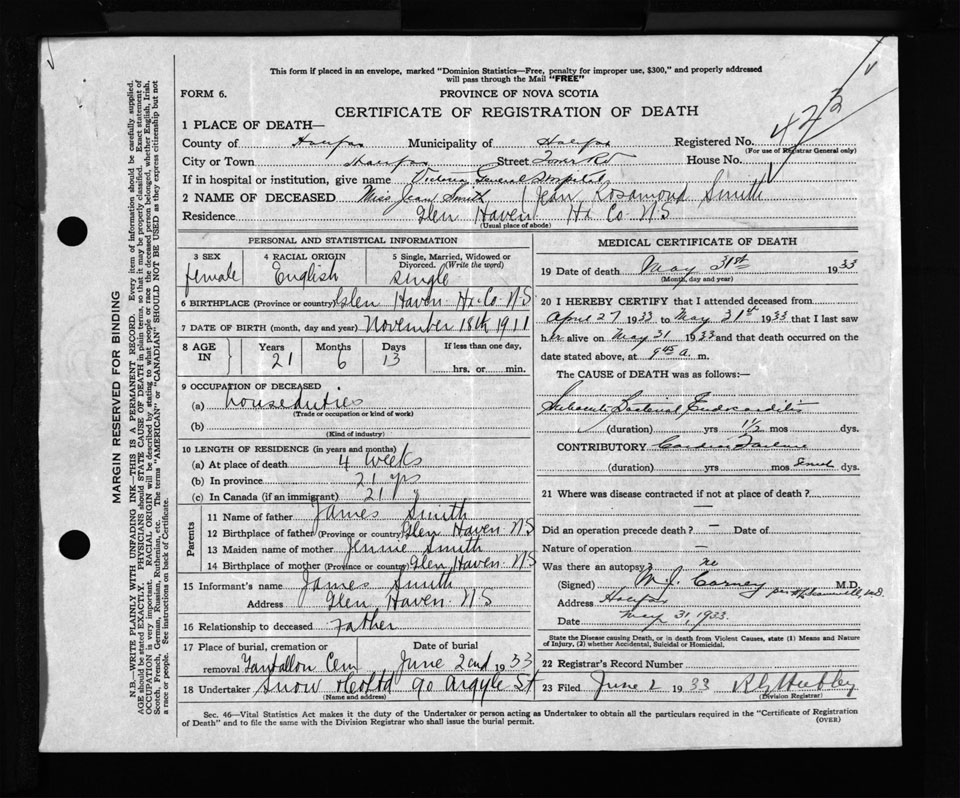 This form if placed in an envelope, marked "Dominion Statistics—Free, penalty for improper use, $300," and properly addressed
will pass through the Mail "FREE"
FORM 6.
PROVINCE OF NOVA SCOTIA
CERTIFICATE OF REGISTRATION OF DEATH
1 PLACE OF DEATH—
County of Halifax Municipality of Halifax Registered No. 423
(For use of Registrar General only)
City or Town Halifax Street Tower Rd House No.
If in hospital or institution, give name Victoria General Hospital
2 NAME OF DECEASED Miss Jean Smith (Jean Rosamond Smith
Residence Glen Haven Hx Co NS
(Usual place of abode)
PERSONAL AND STATISTICAL INFORMATION
3 SEX
female
4 RACIAL ORIGIN
English
5 Single, Married, Widowed or
Divorced. (Write the word)
single
6 BIRTHPLACE (Province or country) Glen Haven Hx-Co-NS
7 DATE OF BIRTH (month, day and year) November 18th 1911
8 AGE
IN
Years
21
Months
6
Days
13
If less than one day,
hrs. or min.
9 OCCUPATION OF DECEASED
(a) houseduties
(Trade or occupation or kind of work)
(b)
(Kind of industry)
10 LENGTH OF RESIDENCE (in years and months)
(a) At place of death 4 weeks
(b) In province 21 yrs
(c) In Canada (if an immigrant) 21 y
Parents
11 Name of father James Smith
12 Birthplace of father (Province or country) Glen Haven NS
13 Maiden name of mother Jennie Smith
14 Birthplace of mother (Province or country) Glen Haven NS
15 Informant's name James Smith
Address Glen Haven NS
16 Relationship to deceased Father
17 Place of burial, cremation or
removal Tantallon Cem
Date of burial
June 2nd 1933
18 Undertaker Snow & Co Ltd 90 Argyle St
(Name and address)
MEDICAL CERTIFICATE OF DEATH
19 Date of death May 31st 1933
(Month, day and year)
20 I HEREBY CERTIFY that I attended deceased from
April 27 1933 to May 31st 1933 that I last saw
her alive on May 31 1933 and that death occurred on the
date stated above, at a. m.
The CAUSE of DEATH was as follows:—
Subacute Bacterial Endocarditis
(duration) yrs 1½ mos dys.
CONTRIBUTORY Cardiac Failure
(duration) yrs mos dys.
21 Where was disease contracted if not at place of death? —
Did an operation precede death? — Date of
Nature of operation —
Was there an autopsy? no
(Signed) M. J. Carney M.D.
Address Halifax
Date May 31, 1933.
State the Disease causing Death, or in death from Violent Causes, state (1) Means and Nature
of Injury, (2) whether Accidental, Suicidal or Homicidal.
22 Registrar's Record Number
23 Filed June 2 1933 Hubley
(Division Registrar)
Sec. 46—Vital Statistics Act makes it the duty of the Undertaker or person acting as Undertaker to obtain all the particulars required in the "Certificate of Registration
of Death" and to file the same with the Division Registrar who shall issue the burial permit.
(OVER)
MARGIN RESERVED FOR BINDING
N.B.—WRITE PLAINLY WITH UNFADING INK—THIS IS A PERMANENT RECORD. Every item of information should be carefully supplied.
AGE should be stated EXACTLY. PHYSICIANS should STATE CAUSE OF DEATH in plain terms, so that it may be properly classified. Exact statement of
OCCUPATION is very important. RACIAL ORIGIN will be described by stating to what people or race the deceased person belonged, whether English, Irish,
Scotch, French, German, Russian, Ruthenian, etc. The terms "AMERICAN" or "CANADIAN" SHOULD NOT BE USED as they express citizenship but not
a race or people. See instructions on back of Certificate.